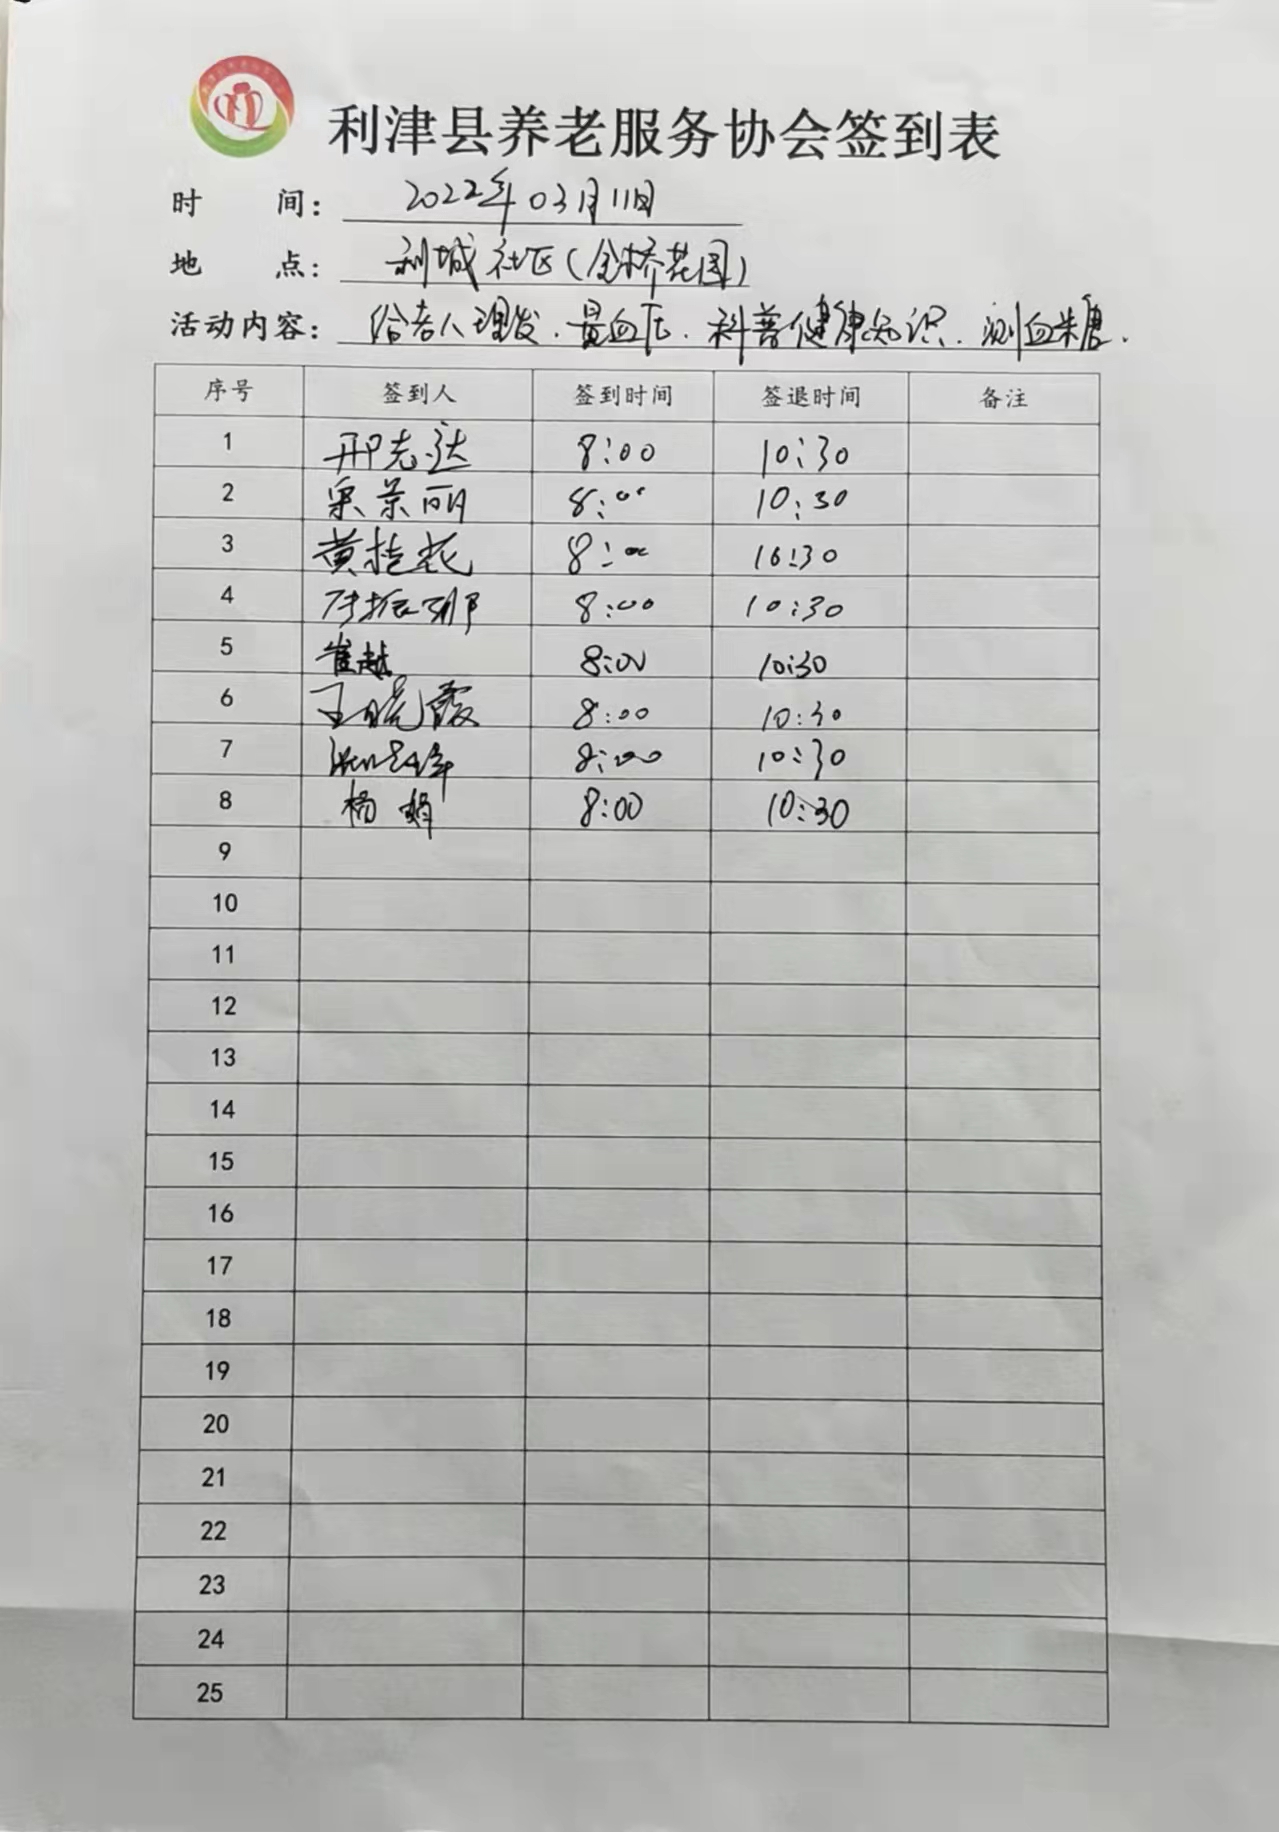 利津县养老服务协会签到表
时 间: 2022年03月11日
地 点: 利城社区(金桥花园)
活动内容: 给老人理发.量血压.科普健康知识.测血糖.
序号 签到人 签到时间 签退时间 备注
1 邢志达 8:00 10:30
2 景丽 8:00 10:30
3 黄桂花 8:00 10:30
4 振 8:00 10:30
5 崔越 8:00 10:30
6 王晓霞 8:00 10:30
7 8:00 10:30
8 杨娟 8:00 10:30
9
10
11
12
13
14
15
16
17
18
19
20
21
22
23
24
25